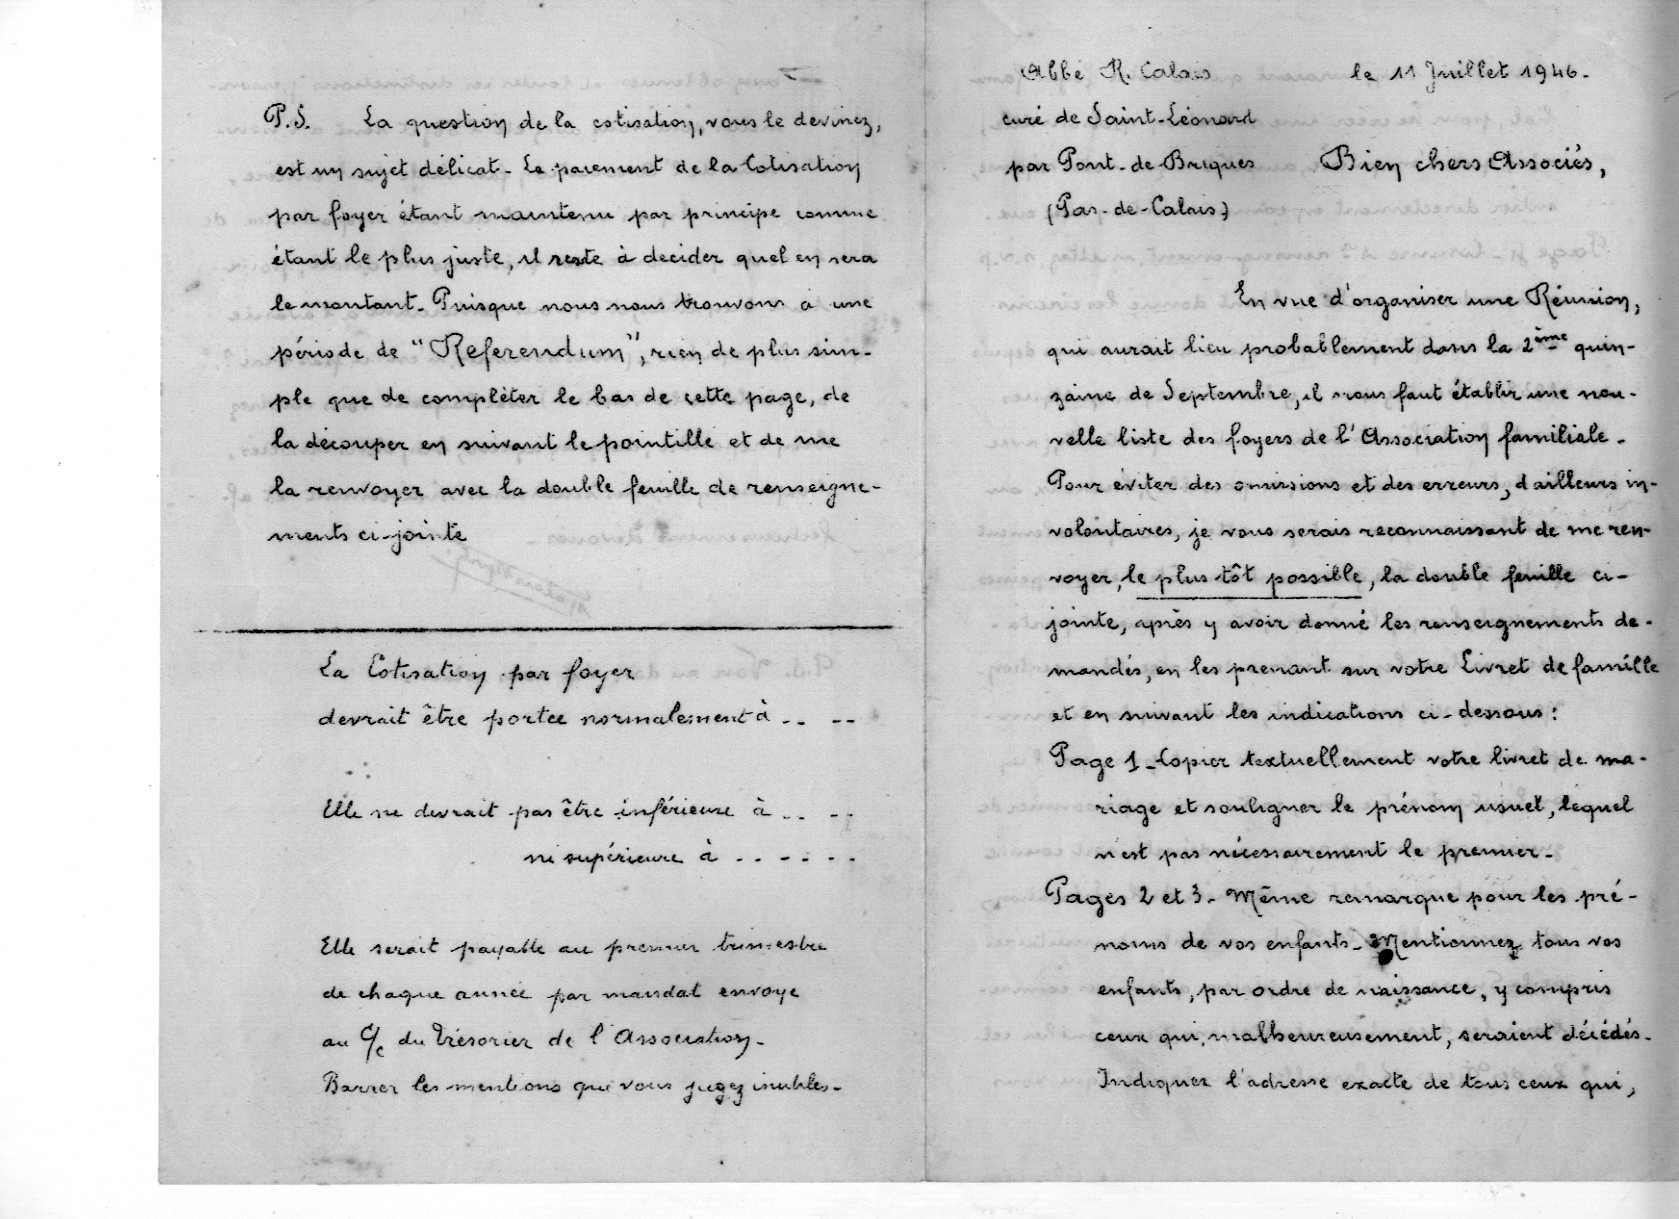 P.S. La question de la cotisation, vous le devinez,
est un sujet délicat - Le paiement de la Cotisation
par foyer étant maintenu par principe comme
étant le plus juste, il reste à decider quel en sera
le montant - Puisque nous nous trouvons à une
période de "Referendum", rien de plus sim-
ple que de compléter le bas de cette page, de
la découper en suivant le pointillé et de me
la renvoyer avec la double feuille de renseigne-
ments ci-jointe
La Cotisation par foyer
devrait être portée normalement à .. --
Elle ne devrait pas être inférieure à .. --
ni supérieure à .. -- ..
Elle serait payable au premier trimestre
de chaque année par mandat envoyé
au C/c du Trésorier de l'Association -
Barrer les mentions que vous jugez inutiles -
Abbé R. Calais le 11 Juillet 1946 -
curé de Saint-Léonard
par Pont-de-Briques Bien chers Associés,
(Pas-de-Calais)
En vue d'organiser une Réunion,
qui aurait lieu probablement dans la 2ème quin-
zaine de Septembre, il nous faut établir une nou-
velle liste des foyers de l'Association familiale -
Pour éviter des omissions et des erreurs, d'ailleurs in-
volontaires, je vous serais reconnaissant de me ren-
voyer, le plus tôt possible, la double feuille ci-
jointe, après y avoir donné les renseignements de-
mandés, en les prenant sur votre Livret de famille
et en suivant les indications ci-dessous :
Page 1 - Copier textuellement votre livret de ma-
riage et souligner le prénom usuel, lequel
n'est pas nécessairement le premier -
Pages 2 et 3 - Même remarque pour les pré-
noms de vos enfants - Mentionnez tous vos
enfants, par ordre de naissance, y compris
ceux qui, malheureusement, seraient décédés -
Indiquer l'adresse exacte de tous ceux qui,